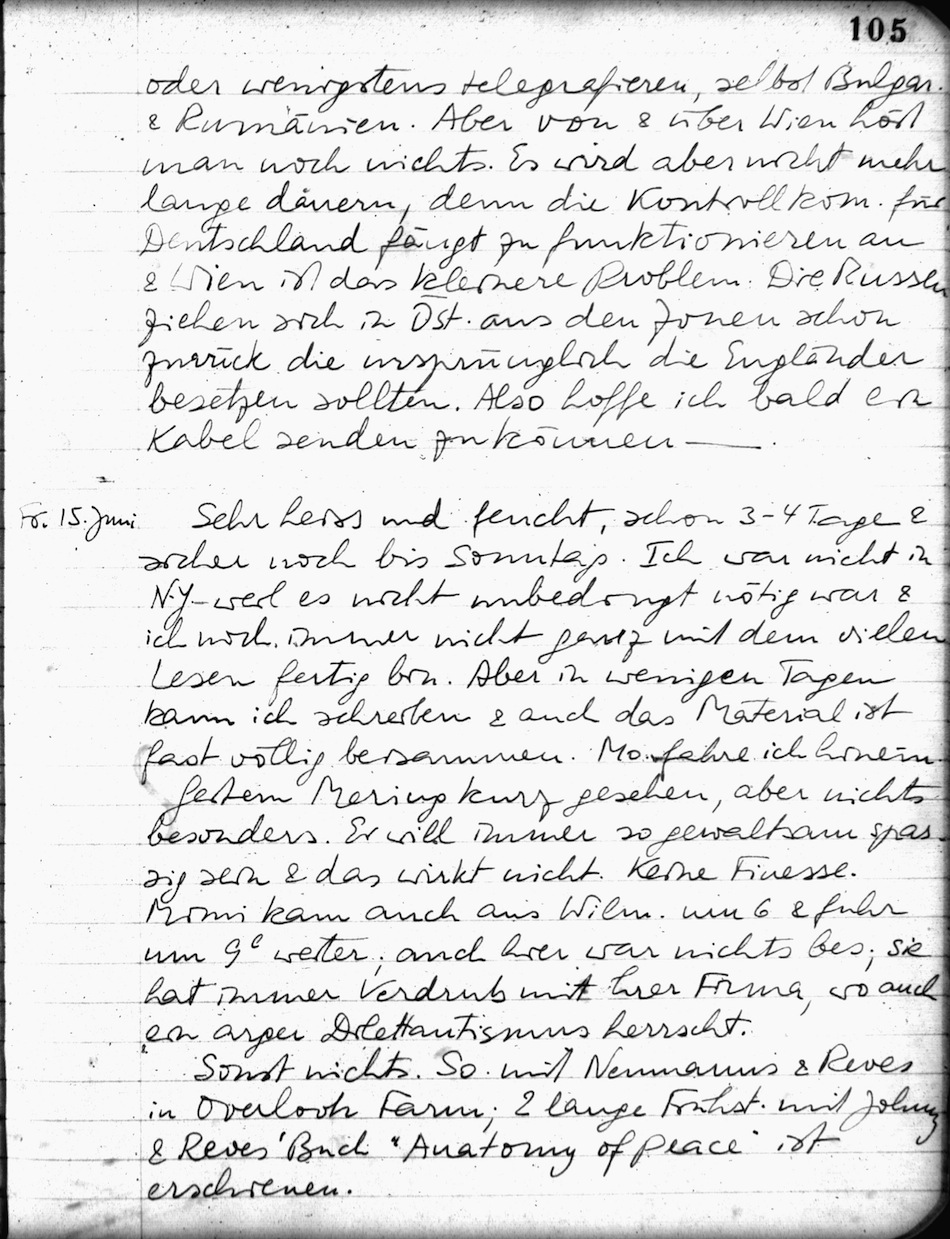 105
oder wenigstens telegrafieren, selbst Bulgar.
& Rumänien. Aber von & über Wien hört
man noch nichts. Es wird aber nicht mehr
lange dauern, denn die Kontrollkom. für
Deutschland fängt zu funktionieren an
& Wien ist das kleinere Problem. Die Russen
ziehen sich in Öst. aus den Zonen schon
zurück die ursprünglich die Engländer
besetzen sollten. Also hoffe ich bald ein
Kabel senden zu können —.
Fr. 15. Juni Sehr heiss und feucht, schon 3-4 Tage &
sicher noch bis Sonntag. Ich war nicht in
N.Y. – weil es nicht unbedingt nötig war &
ich noch immer nicht ganz mit dem vielen
Lesen fertig bin. Aber in wenigen Tagen
kann ich schreiben & auch das Material ist
fast völlig beisammen. Mo. fahre ich hinein.
Gestern Mering kurz gesehen, aber nichts
besonders. Er will immer so gewaltsam spas-
sig sein & das wirkt nicht. Keine Finesse.
Mimi kam auch aus Wilm. um 6 & fuhr
um 9 weiter; auch hier war nichts bes; sie
hat immer Verdruss mit ihrer Firma, wo auch
ein arger Dilettantismus herrscht.
Sonst nichts. So. mit Neumanns & Reves
in Overlook Farm; 2 lange Frühst. mit Johnny
& Reves' Buch "Anatomy of peace" ist
erschienen.